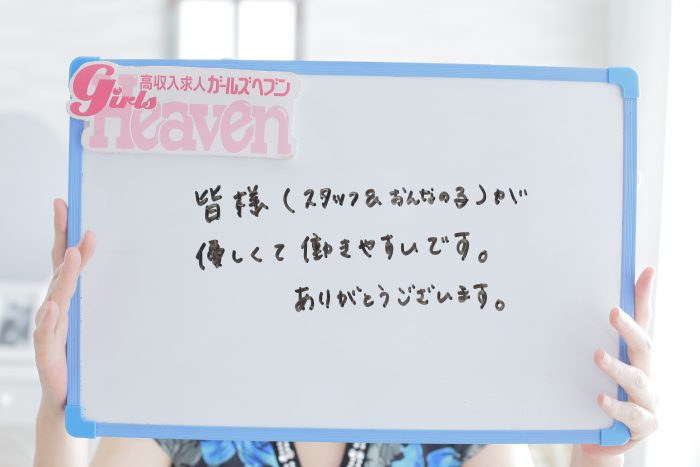 高収入求人ガールズヘブン
Girls
Heaven
皆様(スタッフ&おんなのる)が
優しくて働きやすいです。
ありがとうございます。